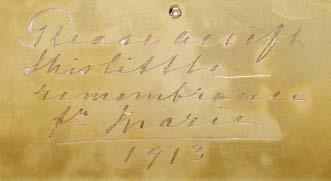 Please accept
this little
remembrance
fr Marie
1913